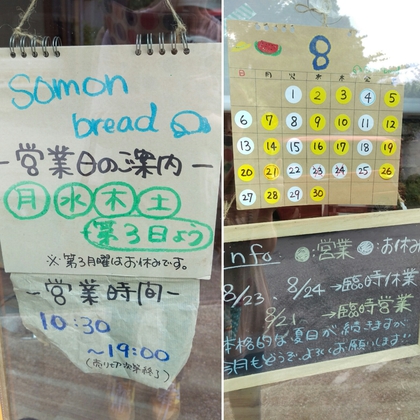 somon
bread
-営業日のご案内-
月 水 木 土
第3日よう
※第3月曜はお休みです。
-営業時間-
10:30
~19:00
8
日 月 火 水 木 金 土
1 2 3 4 5
6 7 8 9 10 11 12
13 14 15 16 17 18 19
20 21 22 23 24 25 26
27 28 29 30
info. 営業 お休み
8/23、8/24→臨時休業
8/21 →臨時営業
本格的な夏日が続きますが
8月もどうぞよろしくお願いします